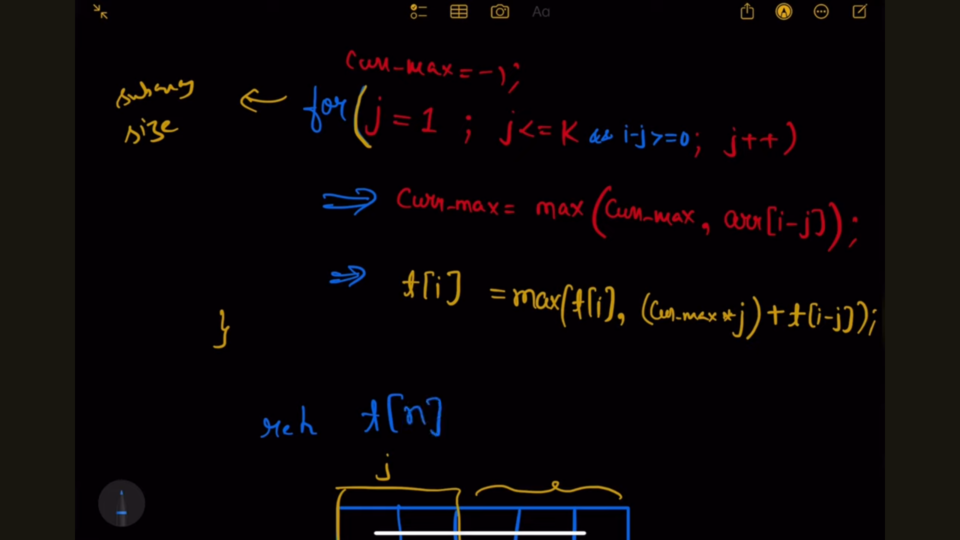 Aa
Curr_max = -1;
subarray
size
for(j = 1 ; j<=K && i-j>=0; j++)
Curr_max = max(Curr_max, arr[i-j]);
t[i] = max(t[i], (Curr_max * j) + t[i-j]);
}
ret t[n]
j